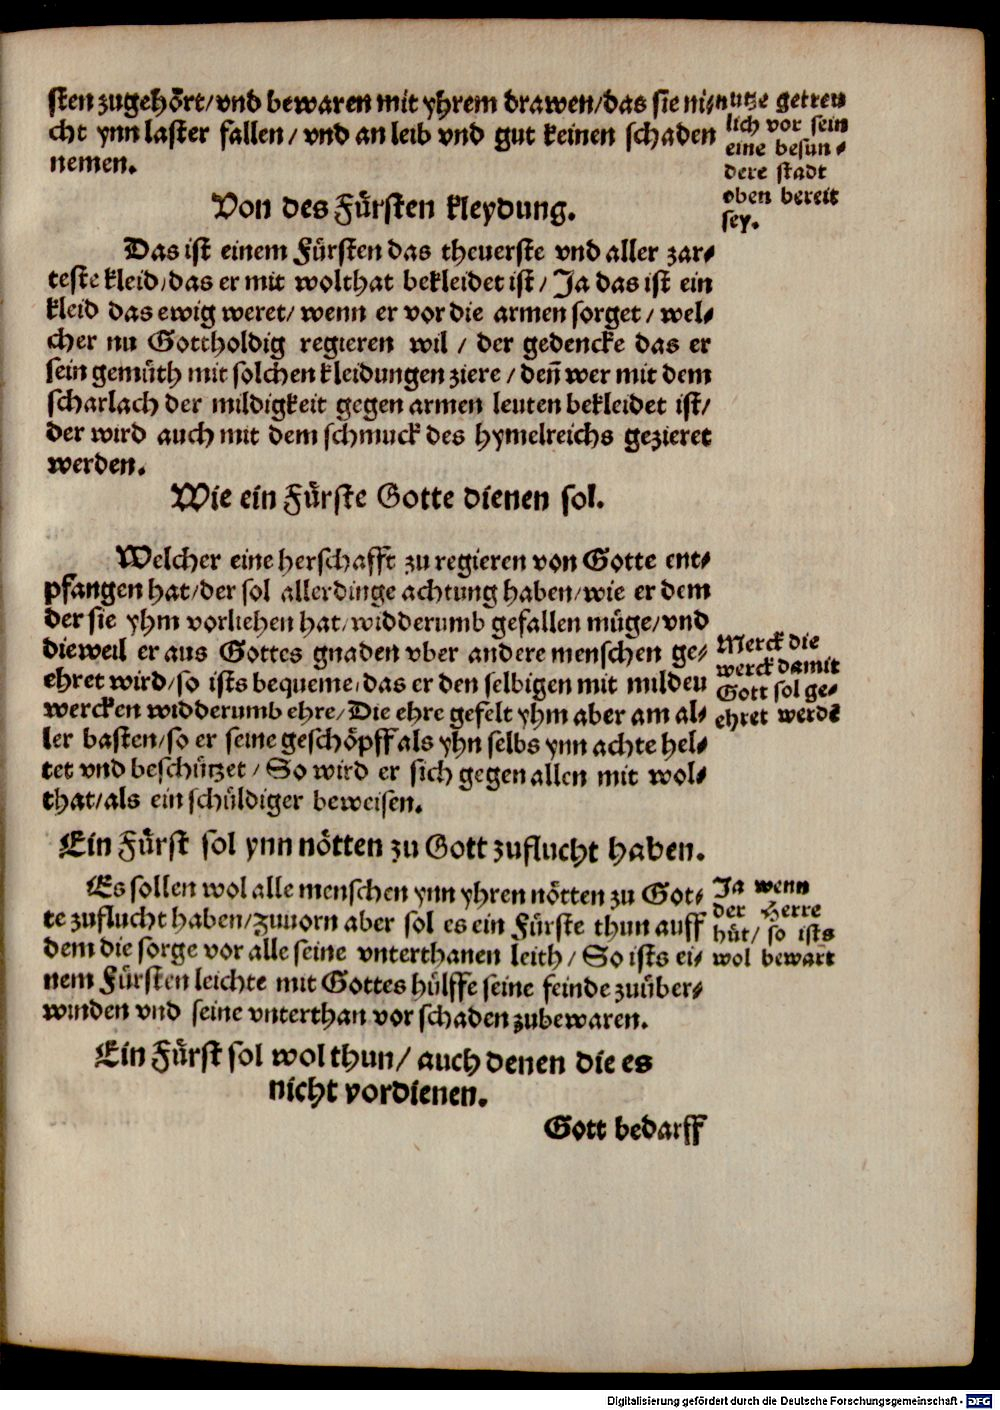 sten zugehört/vnd bewaren mit yhrem drawen/das sie ni-
cht ynn laster fallen/ vnd an leib vnd gut keinen schaden
nemen.
nutze getrew
lich vor sein
eine besun-
dere stadt
oben bereit
sey.
Von des Fürsten kleydung.
Das ist einem Fürsten das theuerste vnd aller zar-
teste kleid/das er mit wolthat bekleidet ist/ Ja das ist ein
kleid das ewig weret/ wenn er vor die armen sorget/ wel-
cher nu Gottholdig regieren wil / der gedencke das er
sein gemüth mit solchen kleidungen ziere/ deñ wer mit dem
scharlach der mildigkeit gegen armen leuten bekleidet ist/
der wird auch mit dem schmuck des hymelreichs gezieret
werden.
Wie ein Fürste Gotte dienen sol.
Welcher eine herschafft zu regieren von Gotte ent-
pfangen hat/der sol allerdinge achtung haben/wie er dem
der sie yhm vorliehen hat/widderumb gefallen müge/vnd
dieweil er aus Gottes gnaden vber andere menschen ge-
ehret wird/so ists bequeme/das er den selbigen mit milden
wercken widderumb ehre/Die ehre gefelt yhm aber am al-
ler basten/so er seine geschöpff als yhn selbs ynn achte hel-
tet vnd beschützet/ So wird er sich gegen allen mit wol-
that/als ein schüldiger beweisen.
Merck die
werck damit
Gott sol ge-
ehret werdē
Ein Fürst sol ynn nötten zu Gott zuflucht haben.
Es sollen wol alle menschen ynn yhren nötten zu Got-
te zuflucht haben/Zuuorn aber sol es ein Fürste thun auff
dem die sorge vor alle seine vnterthanen leith/ So ists ei-
nem Fürsten leichte mit Gottes hülffe seine feinde zuüber-
winden vnd seine vnterthan vor schaden zubewaren.
Ja wenn
der Herre
hüt/ so ists
wol bewart
Ein Fürst sol wol thun/ auch denen die es
nicht vordienen.
Gott bedarff
Digitalisierung gefördert durch die Deutsche Forschungsgemeinschaft - DFG